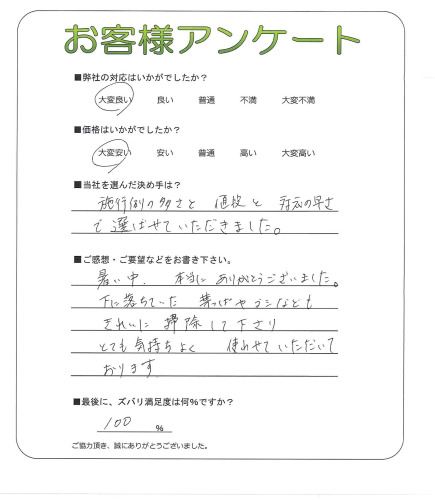 お客様アンケート
■弊社の対応はいかがでしたか？
大変良い 良い 普通 不満 大変不満
■価格はいかがでしたか？
大変安い 安い 普通 高い 大変高い
■当社を選んだ決め手は？
施行例の多さと 値段と 対応の早さ
で選ばせていただきました。
■ご感想・ご要望などをお書き下さい。
暑い中、本当にありがとうございました。
下に落ちていた 葉っぱやゴミなども
きれいに掃除して下さり
とても気持ちよく 使わせていただいて
おります
■最後に、ズバリ満足度は何％ですか？
100 ％
ご協力頂き、誠にありがとうございました。